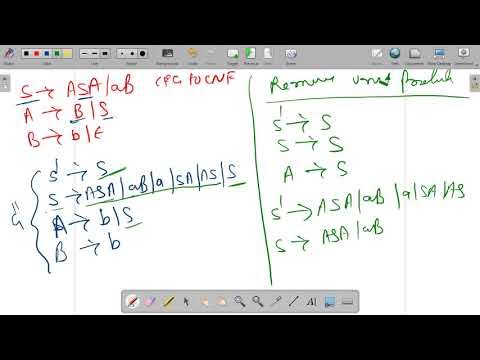 S → ASA | aB CFG to CNF
A → B | S
B → b | ε
S' → S
S → ASA | aB | a | SA | AS | S
A → b | S
B → b
G"
Remove unit Products
S' → S
S → S
A → S
S' → ASA | aB | a | SA | AS
S → ASA | aB